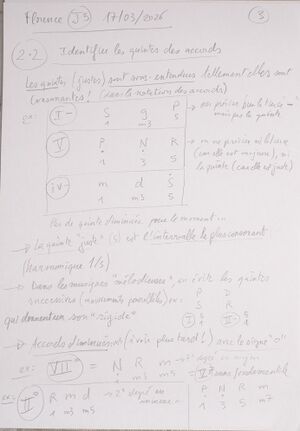 Florence J5 17/03/2026 3
2.2 Identifier les quintes des accords
Les quintes (justes) sont sous-entendues tellement elles sont
consonantes! (dans la notation des accords)
ex: I- S g P → on précise bien la tierce -
1 m3 5 mais pas la quinte
V P N R → on ne précise ni la tierce
1 3 5 (car elle est majeure), ni
la quinte (car elle est juste)
iv- m d S
1 m3 5
Pas de quinte diminuée pour le moment
→ La quinte "juste" (5) est l'intervalle le plus consonant
(harmonique 1/3)
→ Dans les musiques "mélodieuses", on évite les quintes
successives (mouvements parallèles) ex: P R
qui donnent un son "rigide" S 5
→ Accords diminués (à voir plus tard!) avec le signe "o"
ex: VII° = N R m → 7° degré en majeur
1 m3 m5 = V7 sans fondamentale
ex: II° R m d → 2° degré en mineur P N R m
1 m3 m5 1 3 5 m7